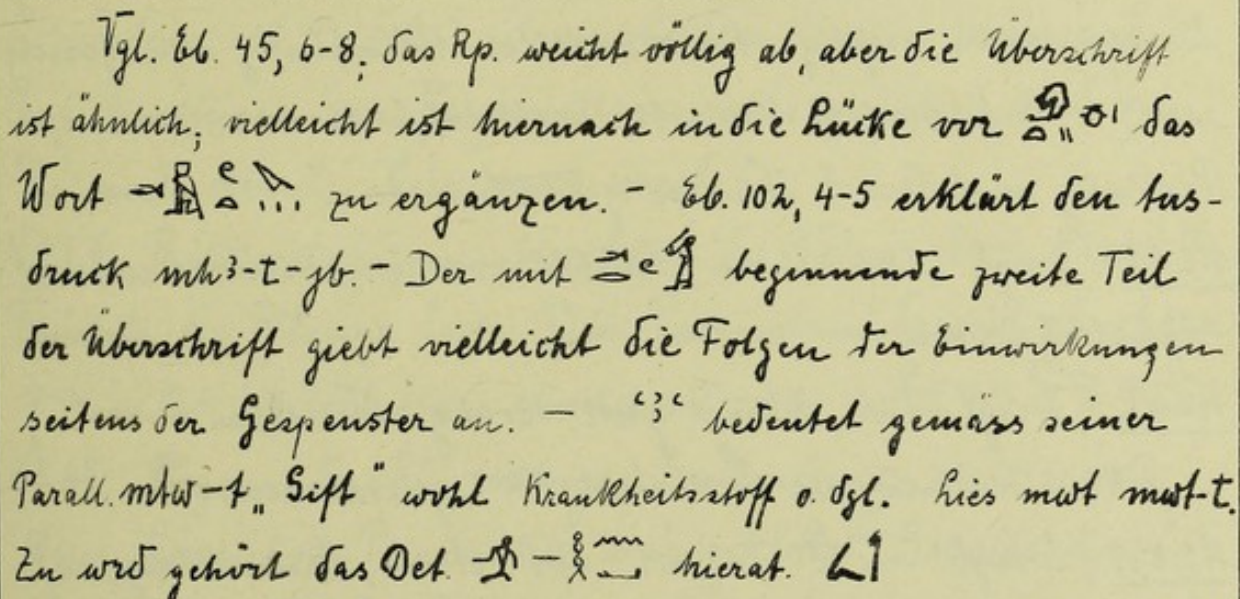 Vgl. Eb. 45, 6-8; das Rp. weicht völlig ab, aber die Überschrift
ist ähnlich; vielleicht ist hiernach in die Lücke vor das
Wort zu ergänzen. - Eb. 102, 4-5 erklärt den Aus-
druck mhꜣ-t-jb. - Der mit beginnende zweite Teil
der Überschrift giebt vielleicht die Folgen der Einwirkungen
seitens der Gespenster an. — ꜥꜣꜥ bedeutet gemäss seiner
Parall. mtw-t „Gift“ wohl Krankheitsstoff o. dgl. Lies mwt mwt-t.
Zu wrd gehört das Det. — hierat.